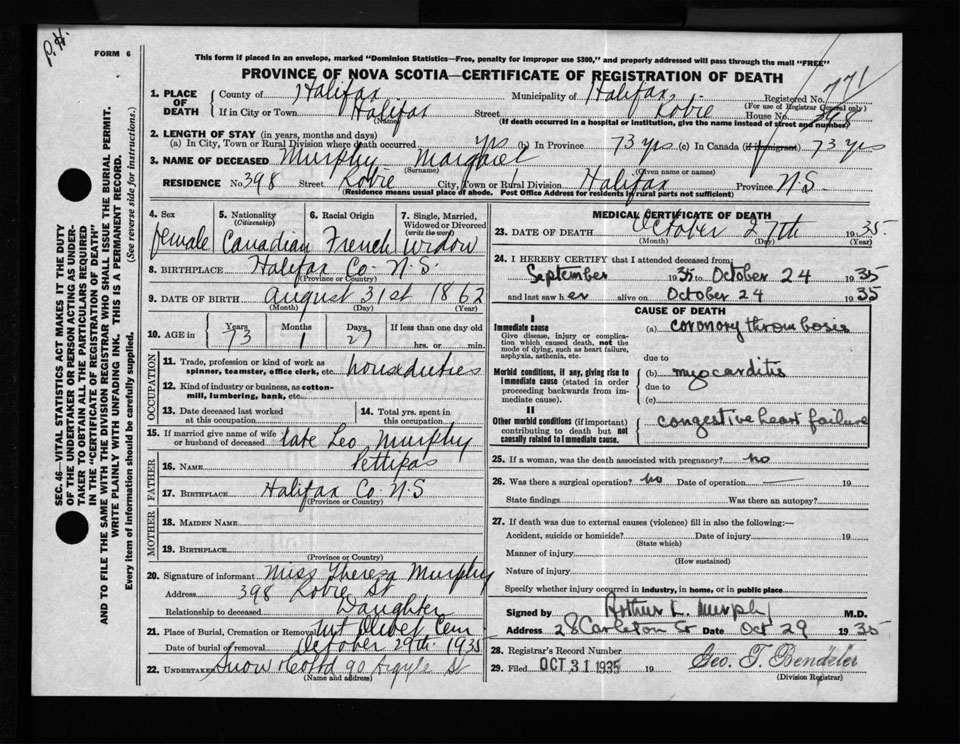 P.H.
FORM 6
This form if placed in an envelope, marked "Dominion Statistics—Free, penalty for improper use $300," and properly addressed will pass through the mail "FREE"
PROVINCE OF NOVA SCOTIA—CERTIFICATE OF REGISTRATION OF DEATH
771
1. PLACE OF DEATH County of Halifax Municipality of Halifax Registered No.
(For use of Registrar General only)
If in City or Town Halifax Street Robie House No. 398
(Name) (If death occurred in a hospital or institution, give the name instead of street and number)
2. LENGTH OF STAY (in years, months and days)
(a) In City, Town or Rural Division where death occurred yrs (b) In Province 73 yrs (c) In Canada (if immigrant) 73 yrs
3. NAME OF DECEASED Murphy Margaret
(Surname) (Given name or names)
RESIDENCE No. 398 Street Robie City, Town or Rural Division Halifax Province N.S.
(Residence means usual place of abode. Post Office Address for residents in rural parts not sufficient)
SEC. 46—VITAL STATISTICS ACT MAKES IT THE DUTY
OF THE UNDERTAKER OR PERSON ACTING AS UNDER-
TAKER TO OBTAIN ALL THE PARTICULARS REQUIRED
IN THE "CERTIFICATE OF REGISTRATION OF DEATH"
AND TO FILE THE SAME WITH THE DIVISION REGISTRAR WHO SHALL ISSUE THE BURIAL PERMIT.
WRITE PLAINLY WITH UNFADING INK. THIS IS A PERMANENT RECORD.
Every item of information should be carefully supplied. (See reverse side for instructions.)
4. Sex 5. Nationality (Citizenship) 6. Racial Origin 7. Single, Married, Widowed or Divorced (write the word)
female Canadian French Widow
8. BIRTHPLACE Halifax Co. N.S.
(Province or Country)
9. DATE OF BIRTH August 31st 1862
(Month) (Day) (Year)
10. AGE in Years Months Days If less than one day old
73 1 27 hrs. or min.
OCCUPATION
11. Trade, profession or kind of work as spinner, teamster, office clerk, etc. houseduties
12. Kind of industry or business, as cotton-mill, lumbering, bank, etc.
13. Date deceased last worked at this occupation 14. Total yrs. spent in this occupation
15. If married give name of wife or husband of deceased late Leo Murphy
FATHER
16. NAME Pettipas
17. BIRTHPLACE Halifax Co. N.S
(Province or Country)
MOTHER
18. MAIDEN NAME
19. BIRTHPLACE
(Province or Country)
20. Signature of informant Miss Theresa Murphy
Address 398 Robie St
Relationship to deceased Daughter
21. Place of Burial, Cremation or Removal Mt Olivet Cem
Date of burial or removal October 29th 1935
22. UNDERTAKER Snow Co Ltd 90 Argyle St
(Name and address)
MEDICAL CERTIFICATE OF DEATH
23. DATE OF DEATH October 27th 1935.
(Month) (Day) (Year)
24. I HEREBY CERTIFY that I attended deceased from
September 1935 to October 24 1935
and last saw h er alive on October 24 1935
CAUSE OF DEATH
I
Immediate cause (a) coronory thrombosis
Give disease, injury or complication which caused death, not the mode of dying, such as heart failure, asphyxia, asthenia, etc.
due to
Morbid conditions, if any, giving rise to immediate cause (stated in order proceeding backwards from immediate cause). (b) myocarditis
due to
(c)
II
Other morbid conditions (if important) contributing to death but not causally related to immediate cause. congestive heart failure
25. If a woman, was the death associated with pregnancy? no
26. Was there a surgical operation? no Date of operation — 19
State findings Was there an autopsy?
27. If death was due to external causes (violence) fill in also the following:—
Accident, suicide or homicide? Date of injury 19
(State which)
Manner of injury
(How sustained)
Nature of injury
Specify whether injury occurred in industry, in home, or in public place
Signed by Arthur L. Murphy M.D.
Address 28 Carleton St Date Oct 29 1935
28. Registrar's Record Number
29. Filed OCT 31 1935 19 Geo. T. Bendzler
(Division Registrar)